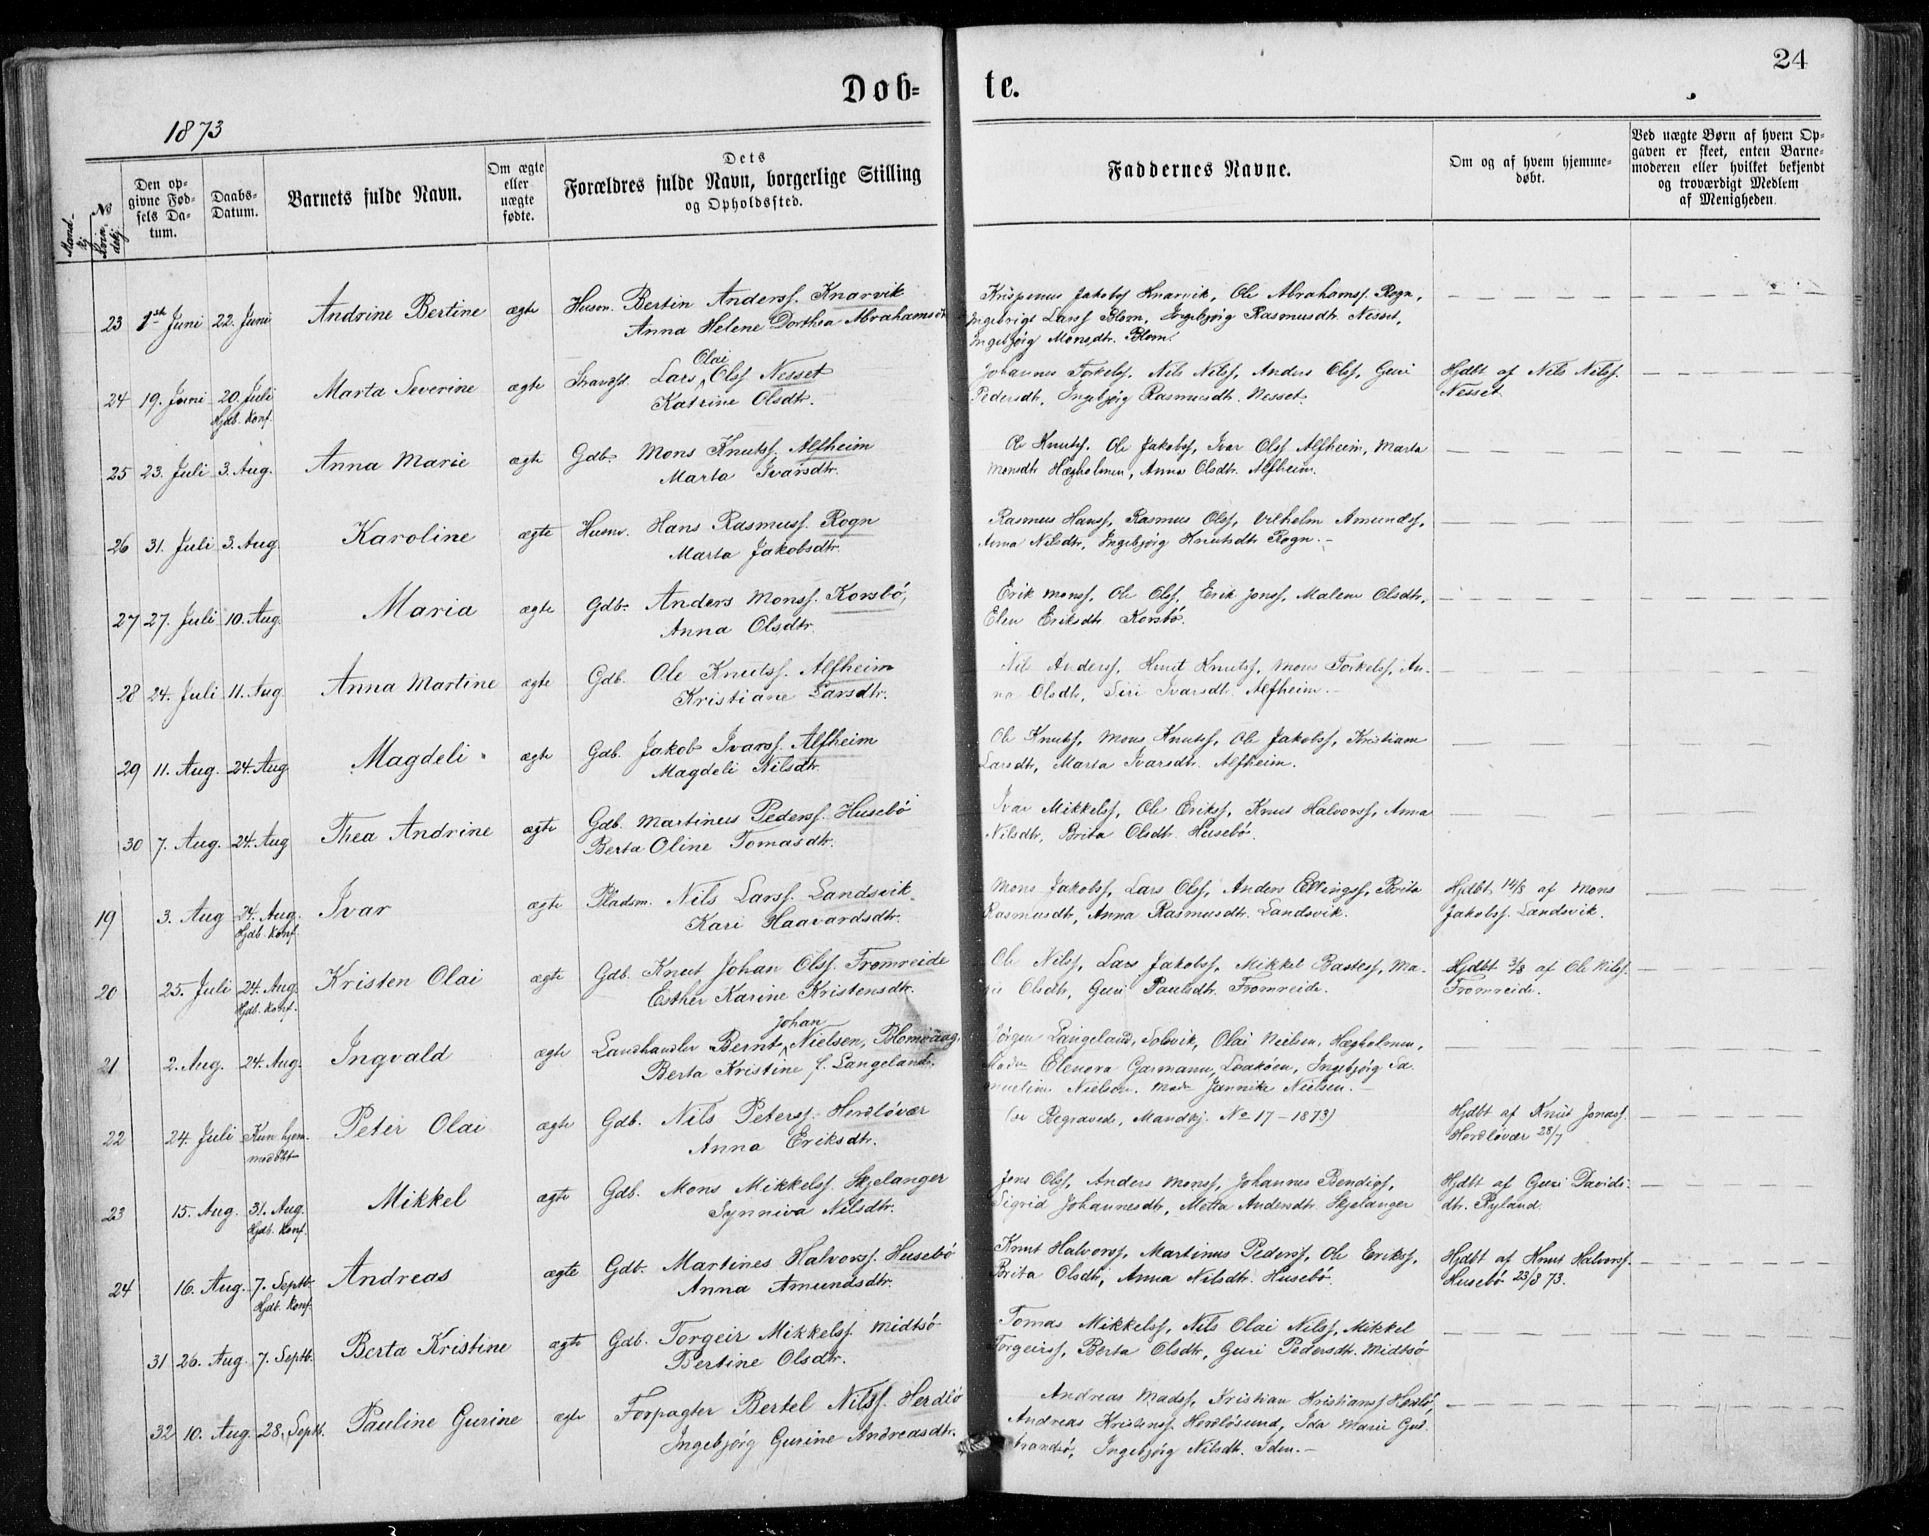 24
Døb-
te.
1873
Mandkj.
No
Kvindekj.
Den op-
givne Fød-
sels Da-
tum.
Daabs-
Datum.
Barnets fulde Navn.
Om ægte
eller
uægte
fødte.
Dets
Forældres fulde Navn, borgerlige Stilling
og Opholdssted.
Faddernes Navne.
Om og af hvem hjemme-
døbt.
Ved uægte Børn af hvem Op-
gaven er skeet, enten Barne-
moderen eller hvilket bekjendt
og troværdigt Medlem
af Menigheden.
23 1st Juni 22. Juni Andrine Bertine ægte Husm. Bertin Anderss. Knarvik
Anna Helene Dorthea Abrahamsdtr
Krispinus Jakobss Knarvik, Ole Abrahamss. Rogn,
Ingebrigt Larss Blom, Ingebjørg Rasmusdtr. Nesset,
Ingebjørg Monsdtr. Blom.
24 19. Juni 20. Juli Marta Severine ægte Strands. Lars Olai Olss Nesset
Hjdb. Konf. Katrine Olsdtr.
Johannes Torkels. Nils Nilss, Anders Olss, Guri
Pedersdtr, Ingebjørg Rasmusdtr. Nesset.
Hjdbt af Nils Nilss.
Nesset.
25 23. Juli 3. Aug. Anna Marie ægte Gdb. Mons Knutss. Alfheim
Marta Ivarsdtr.
Ole Knutss. Ole Jakobss, Ivar Olss Alfheim, Marta
Monsdtr Hægholmen, Anna Olsdtr. Alfheim.
26 31. Juli 3. Aug Karoline ægte Husm. Hans Rasmuss. Rogn
Marta Jakobsdtr.
Rasmus Hanss, Rasmus Olss, Vilhelm Amundss,
Anna Nilsdtr, Ingebjørg Knutsdtr Rogn.
27 27. Juli 10. Aug. Maria ægte Gdb. Anders Monss. Korsbø,
Anna Olsdtr.
Erik Monss, Ole Olss, Erik Jonss, Malene Olsdtr,
Elen Eriksdtr Korsbø.
28 24. Juli 11. Aug Anna Martine ægte Gdb. Ole Knutss. Alfheim
Kristiane Larsdtr.
Nils Anderss, Knut Knutss, Mons Torkelss, An-
na Olsdtr, Siri Ivarsdtr. Alfheim.
29 11. Aug. 24. Aug Magdeli ægte Gdb. Jakob Ivarss. Alfheim
Magdeli Nilsdtr.
Ole Knutss, Mons Knutss, Ole Jakobss, Kristiane
Larsdtr, Marta Ivarsdtr. Alfheim.
30 7. Aug. 24. Aug Thea Andrine ægte Gdb. Martinus Pederss. Husebø
Berta Oline Tomasdtr.
Ivar Mikkelss, Ole Erikss, Knut Halvorss, Anna
Nilsdtr, Brita Olsdtr. Husebø.
19 3. Aug 24. Aug. Ivar ægte Pladsm. Nils Larss. Landsvik
Hjdb. Konf. Kari Haavardsdtr.
Mons Jakobss, Lars Olss, Anders Ellingss, Brita
Rasmusdtr, Anna Rasmusdtr. Landsvik.
Hjdbt 14/8 af Mons
Jakobss. Landsvik.
20 25. Juli 24. Aug. Kristen Olai ægte Gdb. Knut Johan Olss. Fromreide
Hjdb. Konf. Esther Karine Kristensdtr.
Ole Nilss, Lars Jakobss, Mikkel Bastess, Ma-
rie Olsdtr, Guri Paulsdtr. Fromreide.
Hjdbt 3/8 af Ole Nilss.
Fromreide.
21 2. Aug. 24. Aug. Ingvald ægte Landhandler Bernt Johan Nielsen, Blomvaag,
Berta Kristine f. Langeland.
Jørgen Langeland, Solsvik, Olai Nielsen, Hægholmen,
Madm Elenora Garmann, Ingebjørg Sa-
Nielsen. Madm Jannike Nielsen.
22 24. Juli Kun hjem- Peter Olai ægte Gdb. Nils Peterss. Herdløvær
medøbt Anna Eriksdtr.
(se Begravede, Mandkj. No 17 - 1873)
Hjdbt af Knut Jonass.
Herdløvær 28/7
23 15. Aug. 31. Aug. Mikkel ægte Gdb. Mons Mikkelss. Skjelanger
Hjdb. Konf. Synniva Nilsdtr.
Jens Olss, Anders Monss, Johannes Bendigs,
Sigrid Johannesdtr, Metta Andersdtr. Skjelanger
Hjdbt af Guri Davids-
dtr. Ryland.
24 16. Aug. 7. Septb. Andreas ægte Gdb. Martines Halvorss. Husebø
Hjdb. Konf. Anna Amundsdtr.
Knut Halvorss, Martinus Pederss, Ole Erikss,
Brita Olsdtr, Anna Nilsdtr. Husebø.
Hjdbt af Knut Halvorss.
Husebø 23/8 73.
31 26. Aug. 7. Septb. Berta Kristine ægte Gdb. Torgeir Mikkelss. Midtsø
Bertine Olsdtr.
Tomas Mikkelss, Nils Olai Nilss, Mikkel
Torgeirss, Berta Olsdtr, Guri Pedersdtr. Midtsø
32 10. Aug. 28. Septb. Pauline Gurine ægte Forpagter Bertel Nilss. Herdlø
Ingebjørg Gurine Andreasdtr.
Andreas Madss, Kristian Kristianss Herdlø,
Andreas Kristenss Herdløsund, Ida Marie
Ingebjørg Nilsdtr. Iden.